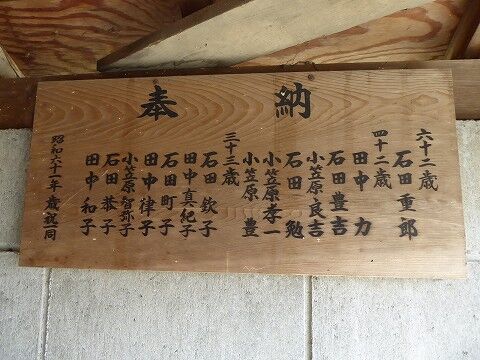 奉納
六十二歳
石田重郎
四十二歳
田中力
石田豊吉
小笠原良吉
石田勉
小笠原孝一
小笠原豊
三十三歳
石田欽子
田中真紀子
石田町子
田中律子
小笠原智弥子
石田恭子
田中和子
昭和六十一年歳祝一同